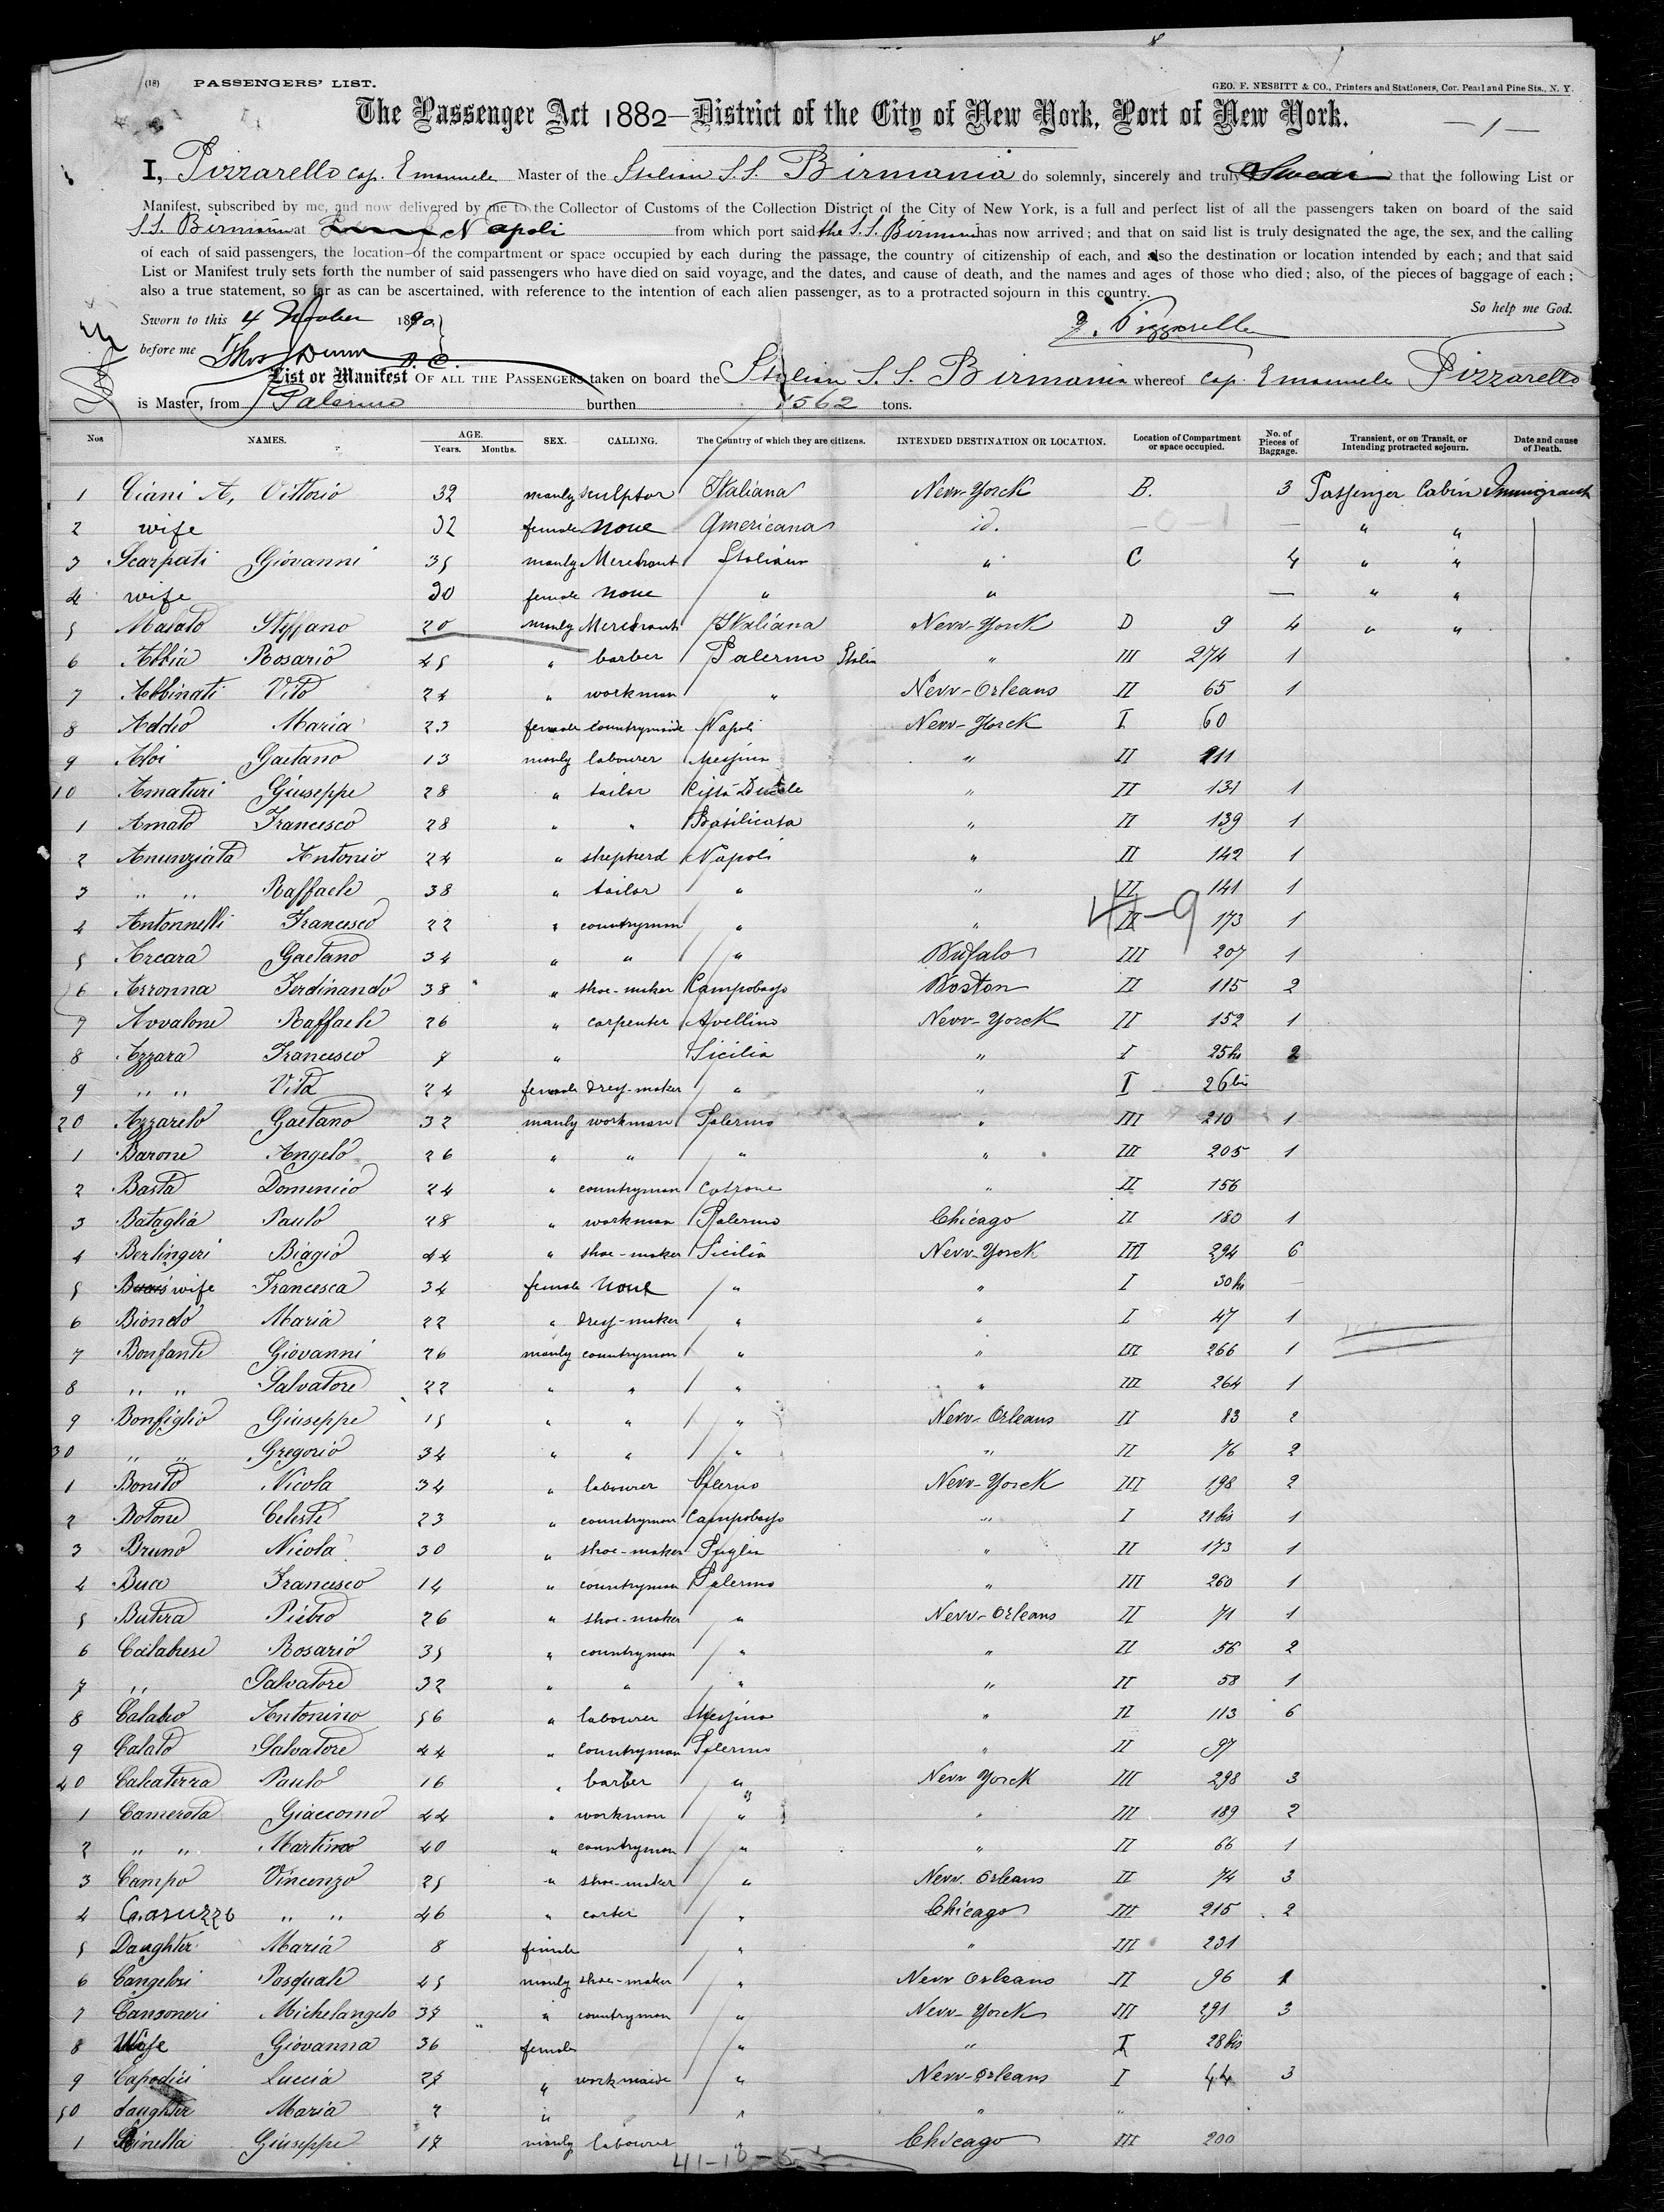 8
(18) PASSENGERS' LIST. GEO. F. NESBITT & CO., Printers and Stationers, Cor. Pearl and Pine Sts., N. Y.
The Passenger Act 1882—District of the City of New York, Port of New York. —1—
I, Pizzarello Cap. Emanuele Master of the Italian S.S. Birmania do solemnly, sincerely and truly Swear that the following List or
Manifest, subscribed by me, and now delivered by me to the Collector of Customs of the Collection District of the City of New York, is a full and perfect list of all the passengers taken on board of the said
S.S. Birmania at Napoli from which port said the S.S. Birmania has now arrived; and that on said list is truly designated the age, the sex, and the calling
of each of said passengers, the location of the compartment or space occupied by each during the passage, the country of citizenship of each, and also the destination or location intended by each; and that said
List or Manifest truly sets forth the number of said passengers who have died on said voyage, and the dates, and cause of death, and the names and ages of those who died; also, of the pieces of baggage of each;
also a true statement, so far as can be ascertained, with reference to the intention of each alien passenger, as to a protracted sojourn in this country.
So help me God.
Sworn to this 4 October 1890
E. Pizzarello
before me Thos Dunn D. C.
List or Manifest OF ALL THE PASSENGERS taken on board the Italian S. S. Birmania whereof Cap. Emanuele Pizzarello
is Master, from Palermo burthen 1562 tons.
Nos NAMES. AGE. Years. Months. SEX. CALLING. The Country of which they are citizens. INTENDED DESTINATION OR LOCATION. Location of Compartment or space occupied. No. of Pieces of Baggage. Transient, or on Transit, or Intending protracted sojourn. Date and cause of Death.
1 Ciani A, Vittorio 32 manly sculptor Italiana New-Yorck B. 3 Passenger Cabin Immigrant
2 wife 32 female none Americana id. — — " "
3 Scarpati Giovanni 35 manly Merchant Italian " C 4 " "
4 wife 20 female none " " — " "
5 Masato Steffano 20 manly Merchant Italiana New-Yorck D 9 4 " "
6 Abbia Rosario 45 " barber Palermo Italia " III 274 1
7 Abbinati Vito 24 " workman " New-Orleans II 65 1
8 Addio Maria 23 female countrymaide Napoli New-Yorck I 60
9 Aloi Gaetano 13 manly labourer Messina " II 211
10 Amaturi Giuseppe 28 " tailor Città Ducale " II 131 1
1 Amato Francesco 28 " " Basilicata " II 139 1
2 Anunziata Antonio 24 " shepherd Napoli " II 142 1
3 " " Raffaele 38 " tailor " " II 141 1
4 Antonnelli Francesco 22 " countryman " " II 173 1
4-9
5 Arcara Gaetano 34 " " " Bufalo III 207 1
6 Arronna Ferdinando 38 " shoe-maker Campobasso Boston II 115 2
7 Avvalone Raffaele 26 " carpenter Avellino New-Yorck II 152 1
8 Azzara Francesco 7 " Sicilia " I 25 bis 2
9 " " Vita 24 female dress-maker " " I 26 bis
20 Azzarelo Gaetano 32 manly workman Palermo " III 210 1
1 Barone Angelo 26 " " " " III 205 1
2 Basta Domenico 24 " countryman Cotrone " II 156
3 Bataglia Paulo 28 " workman Palermo Chicago II 180 1
4 Berlingeri Biagio 44 " shoe-maker Sicilia New-Yorck III 294 6
5 wife Francesca 34 female none " " I 30 bis —
6 Biondo Maria 22 " dress-maker " " I 47 1
7 Bonfante Giovanni 26 manly countryman " " III 266 1
8 " " Salvatore 22 " " " " III 264 1
9 Bonfiglio Giuseppe 15 " " " New-Orleans II 83 2
30 " " Gregorio 34 " " " " II 76 2
1 Bonito Nicola 34 " labourer Salerno New-Yorck III 198 2
2 Botone Celeste 23 " countryman Campobasso " I 21 bis 1
3 Bruno Nicola 30 " shoe-maker Puglia " II 173 1
4 Buco Francesco 14 " countryman Palermo " III 260 1
5 Butera Pietro 26 " shoe-maker " New-Orleans II 71 1
6 Calabrese Rosario 35 " countryman " " II 56 2
7 " Salvatore 32 " " " " II 58 1
8 Calabro Antonino 56 " labourer Messina " II 113 6
9 Calato Salvatore 44 " countryman Palermo " II 97
40 Calcaterra Paulo 16 " barber " New Yorck III 298 3
1 Camerota Giaccomo 44 " workman " " III 189 2
2 " " Martino 40 " countryman " " II 66 1
3 Campo Vincenzo 25 " shoe-maker " New. Orleans II 74 3
4 Caruzzo " " 46 " carter " Chicago III 215 2
5 Daughter Maria 8 female " " III 231
6 Cangelosi Pasquale 45 manly shoe-maker " New Orleans II 96 1
7 Cansoneri Michelangelo 37 " countryman " New-Yorck III 291 3
8 Wife Giovanna 36 female " " I 28 bis
9 Capodici Luccia 27 " workmaide " New-Orleans I 44 3
50 daughter Maria 2 " " " "
1 Cinella Giuseppe 17 manly labourer " Chicago III 200